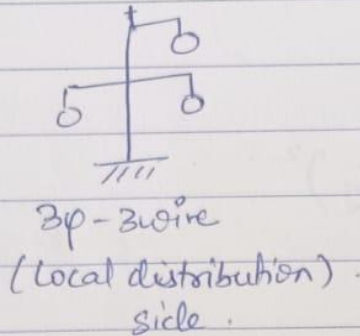 3φ-3wire
(local distribution)
side.